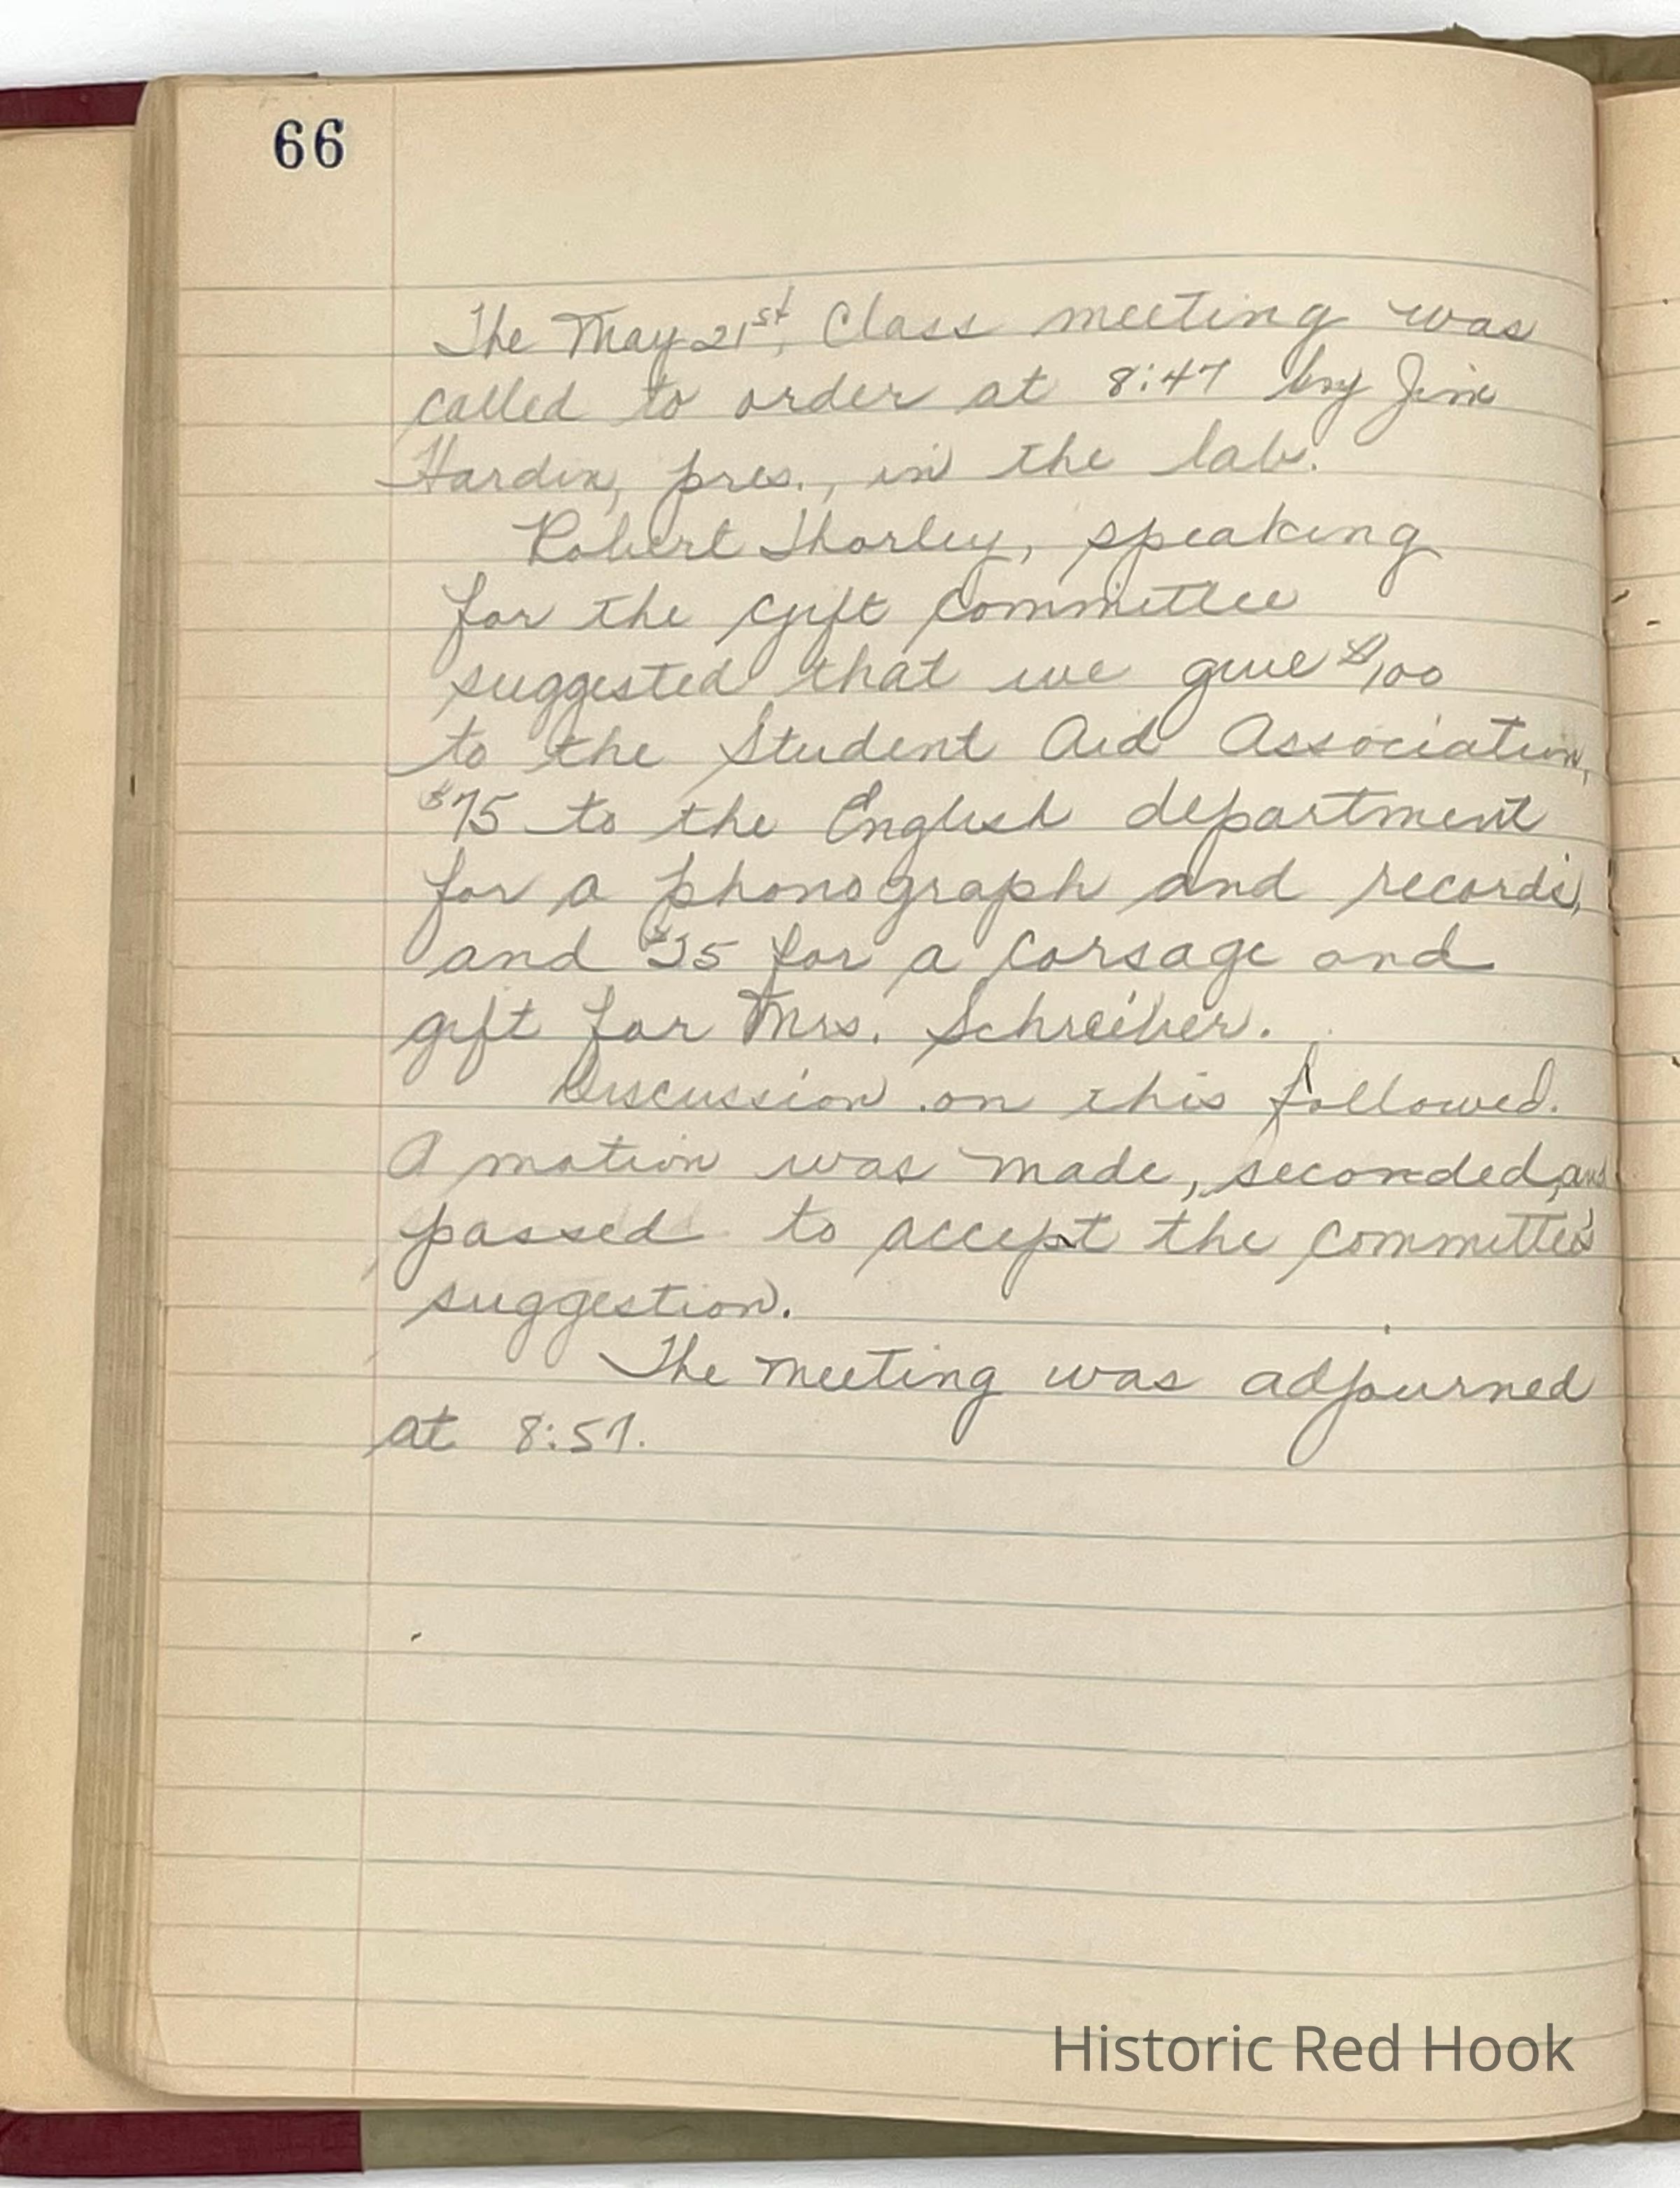 66
The May 21st, Class meeting was
called to order at 8:47 by Jim
Hardin, pres., in the lab.
Robert Thorley, speaking
for the gift committee
suggested that we give $100
to the Student Aid Association,
$75 to the English department
for a phonograph and records,
and $25 for a corsage and
gift for Mrs. Schreiber.
Discussion on this followed.
A motion was made, seconded, and
passed to accept the committee's
suggestion.
The meeting was adjourned
at 8:57.
Historic Red Hook